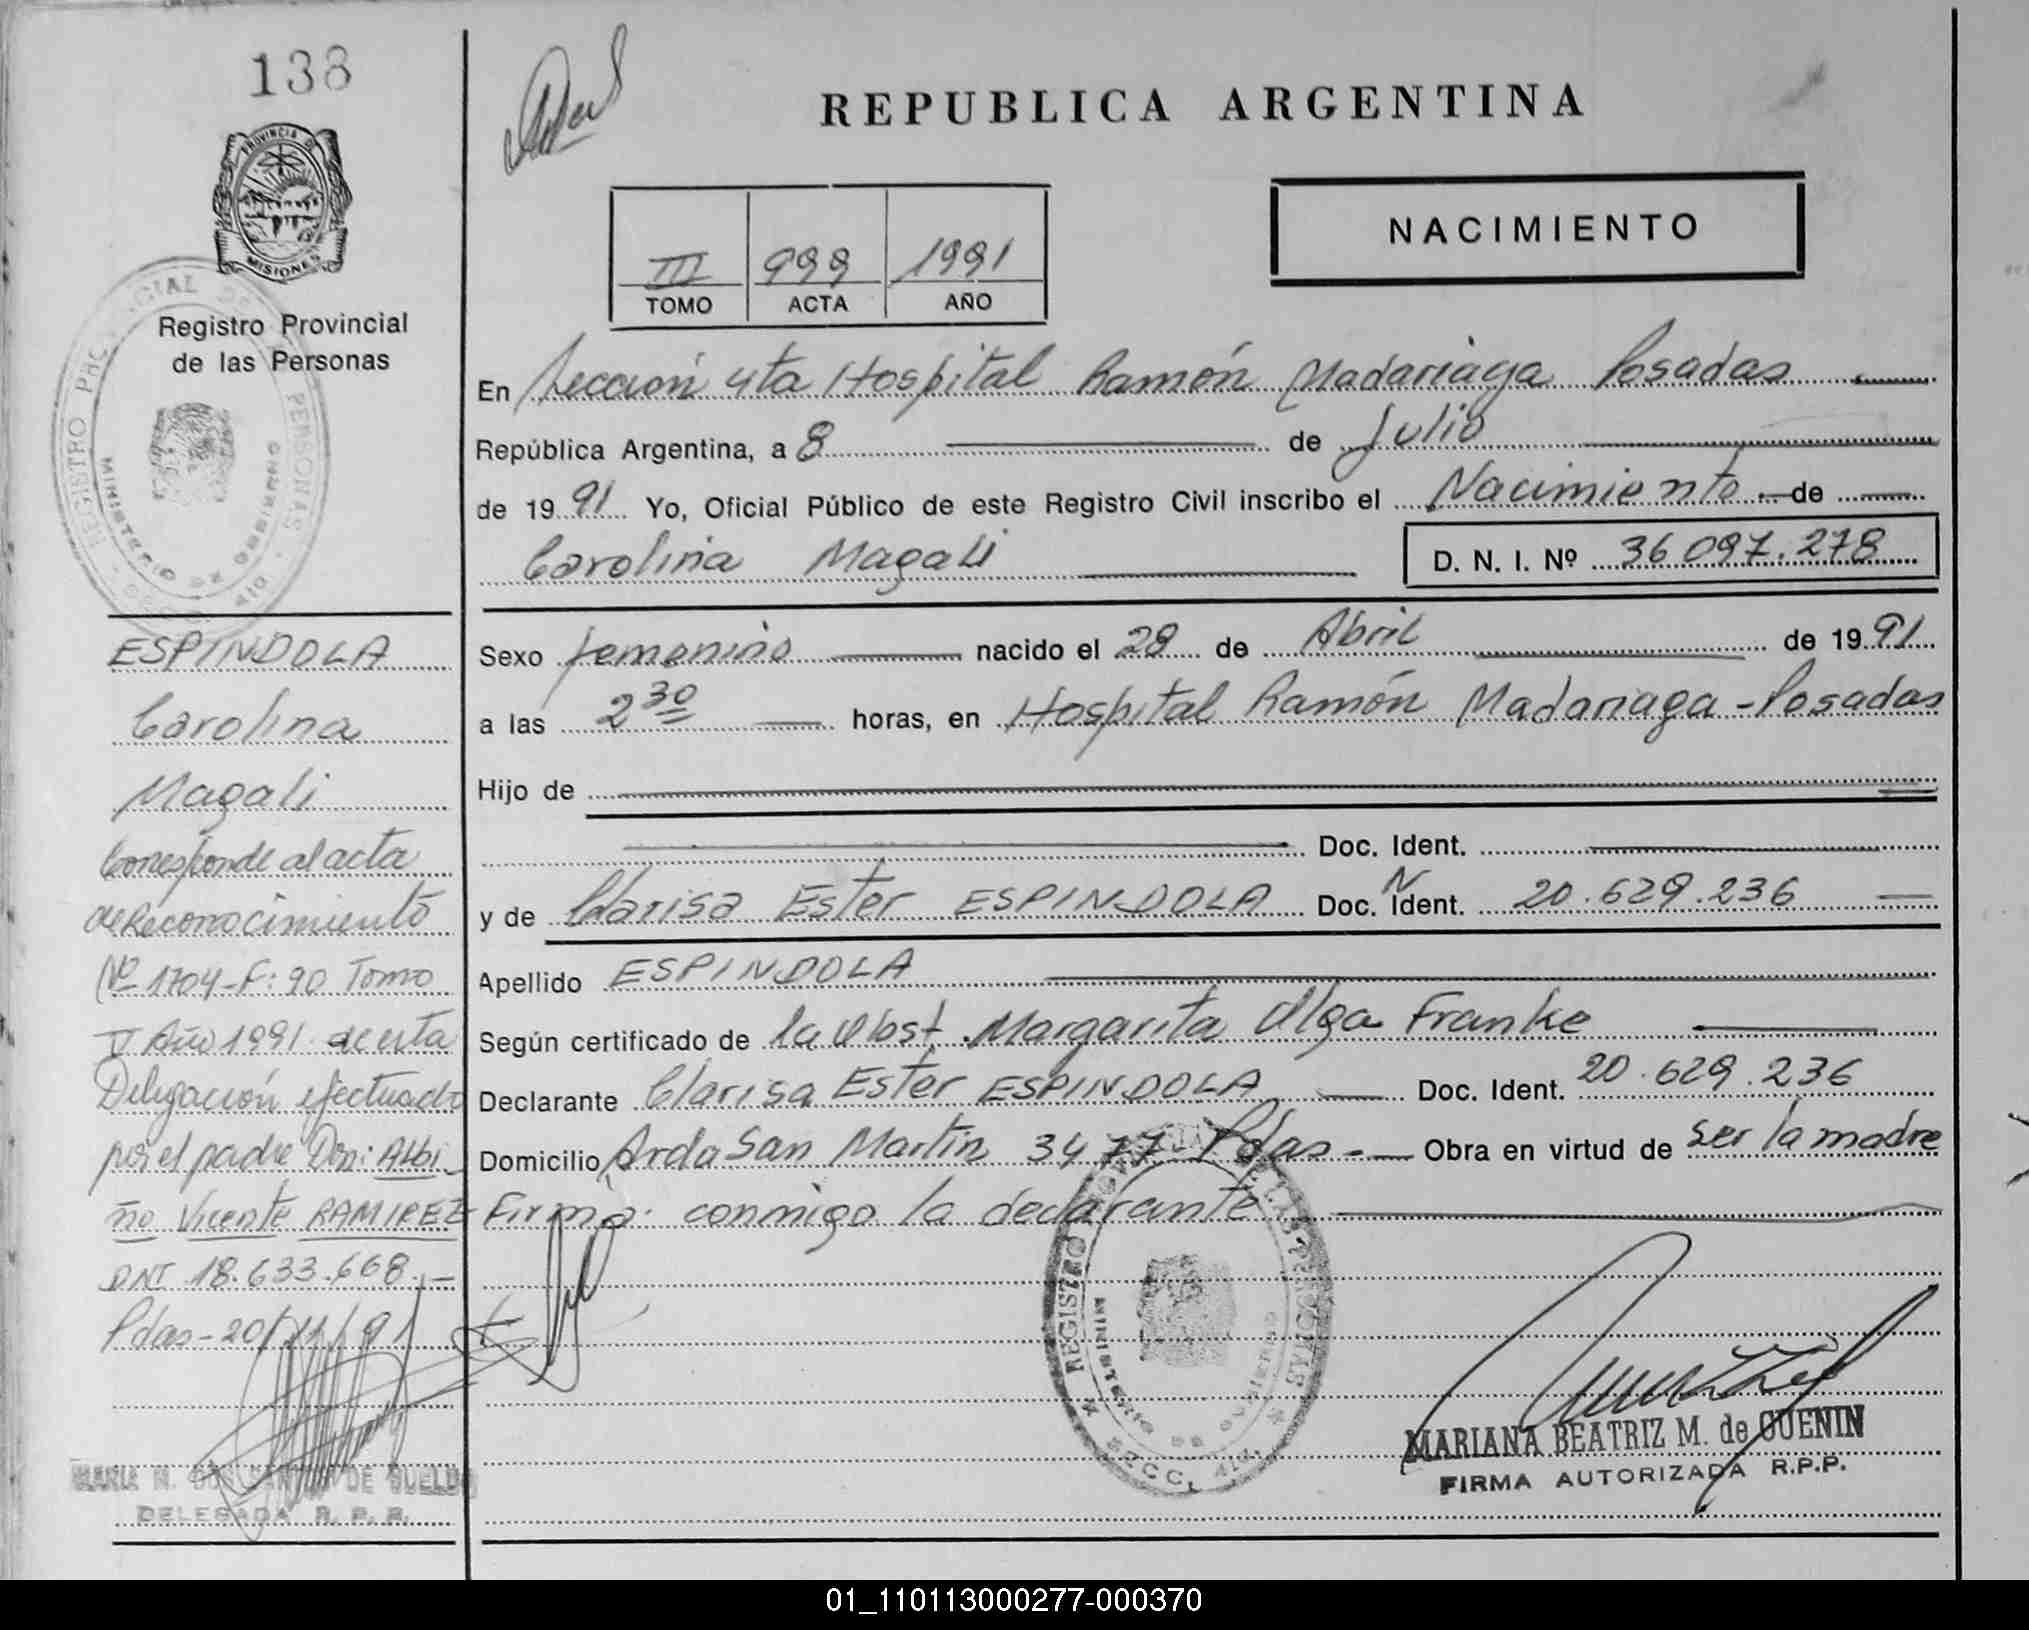 138
PROVINCIA DE
MISIONES
Registro Provincial
de las Personas
REPUBLICA ARGENTINA
NACIMIENTO
III 999 1991
TOMO ACTA AÑO
En Sección 4ta Hospital Ramón Madariaga Posadas
República Argentina, a 8 de Julio
de 1991 Yo, Oficial Público de este Registro Civil inscribo el Nacimiento de
Carolina Magali D. N. I. Nº 36.097.278
Sexo femenino nacido el 28 de Abril de 1991
a las 2 30 horas, en Hospital Ramón Madariaga - Posadas
Hijo de
Doc. Ident.
y de Clarisa Ester ESPINDOLA Doc. N Ident. 20.629.236
Apellido ESPINDOLA
Según certificado de la Obst. Margarita Olga Franke
Declarante Clarisa Ester ESPINDOLA Doc. Ident. 20.629.236
Domicilio Avda San Martín 3477 Pdas - Obra en virtud de ser la madre
Firma conmigo la declarante
MARIANA BEATRIZ M. de GUENIN
FIRMA AUTORIZADA R.P.P.
ESPINDOLA
Carolina
Magali
Corresponde al acta
de Reconocimiento
Nº 1704-F: 90 Tomo
V Año 1991 de esta
Delegación efectuado
por el padre Don: Albi-
no Vicente RAMIREZ
DNI 18.633.668.-
Pdas-20/11/91
DELEGADA R. P. P.
REGISTRO PROVINCIAL DE LAS PERSONAS
MINISTERIO DE GOBIERNO
REGISTRO
MINISTERIO DE GOBIERNO
01_110113000277-000370